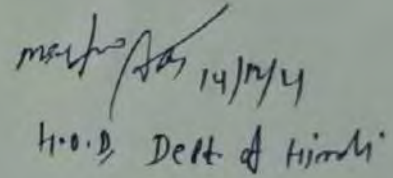 14/12/21
H.O.D, Dept. of Hindi.